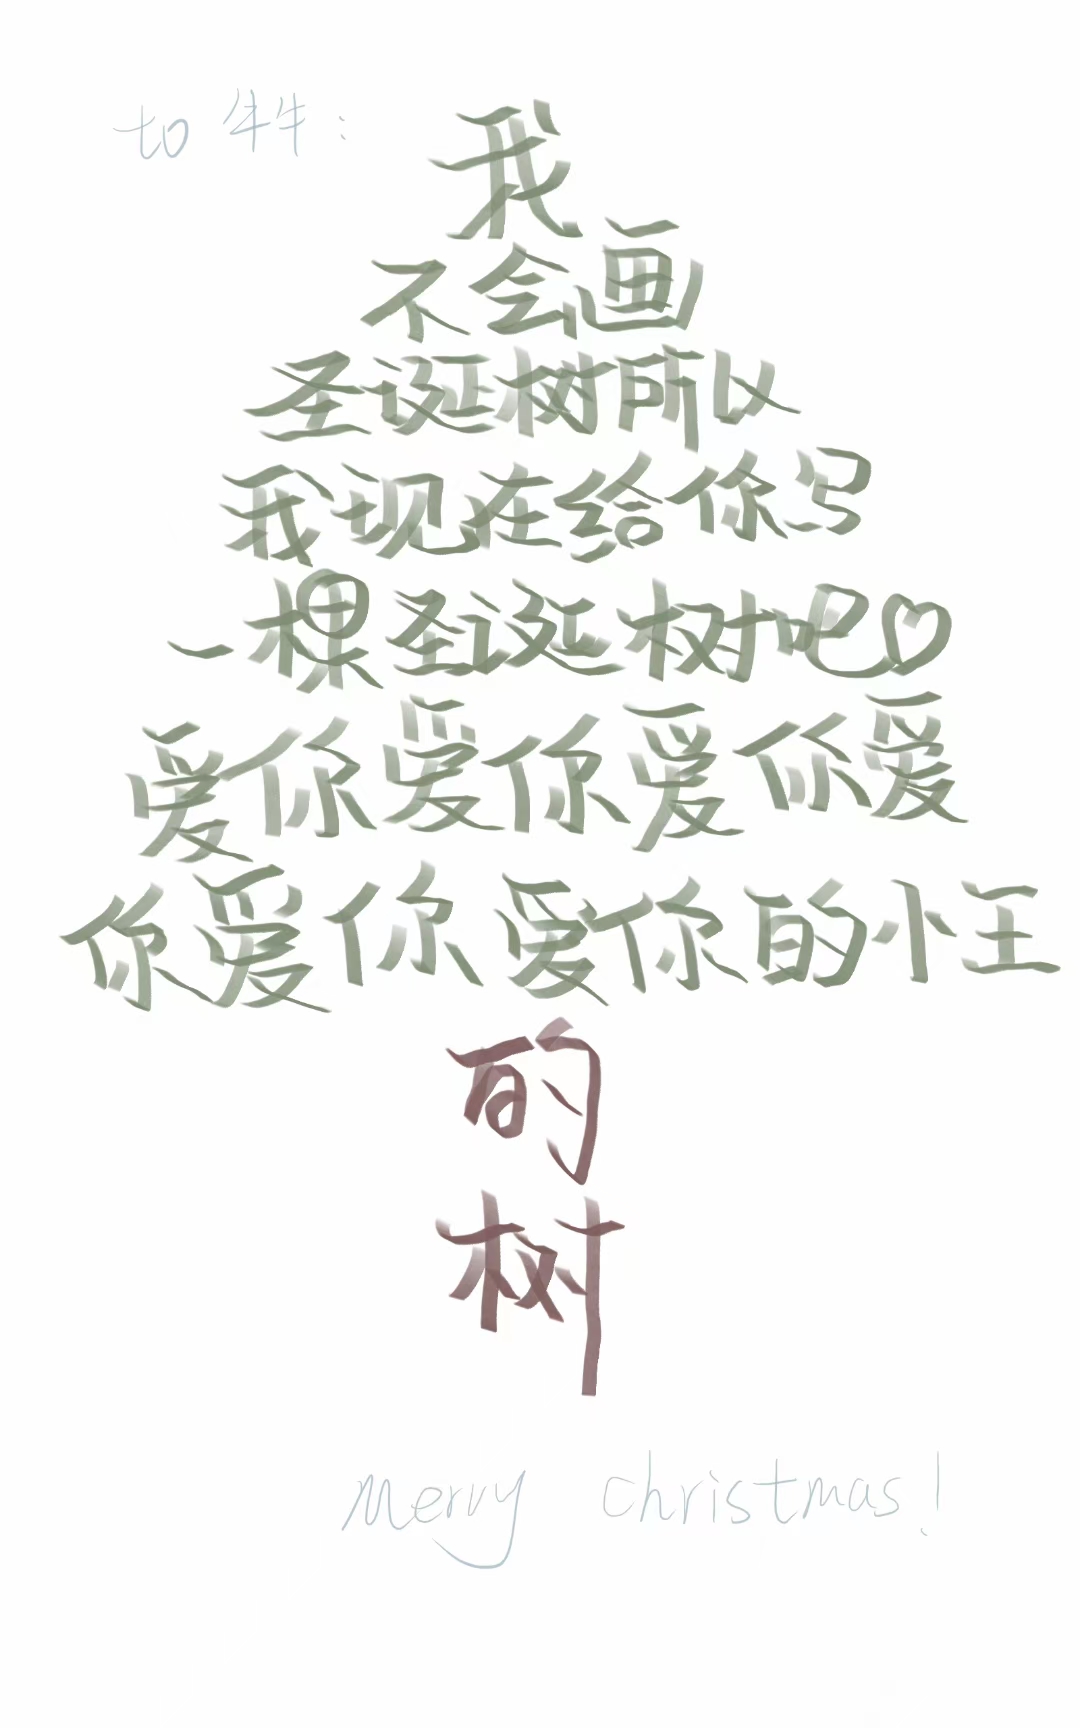 to
我
不会画
圣诞树所以
我现在给你写
一棵圣诞树吧♡
爱你爱你爱你爱
你爱你爱你的小王
的
树
Merry christmas!